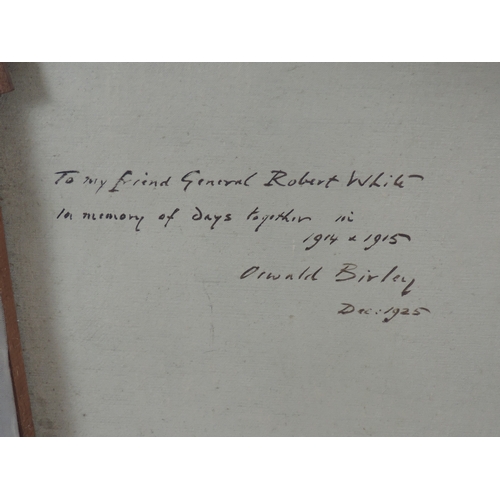 To my friend General Robert White
In memory of days together in
1914 & 1915
Oswald Birley
Dec: 1925